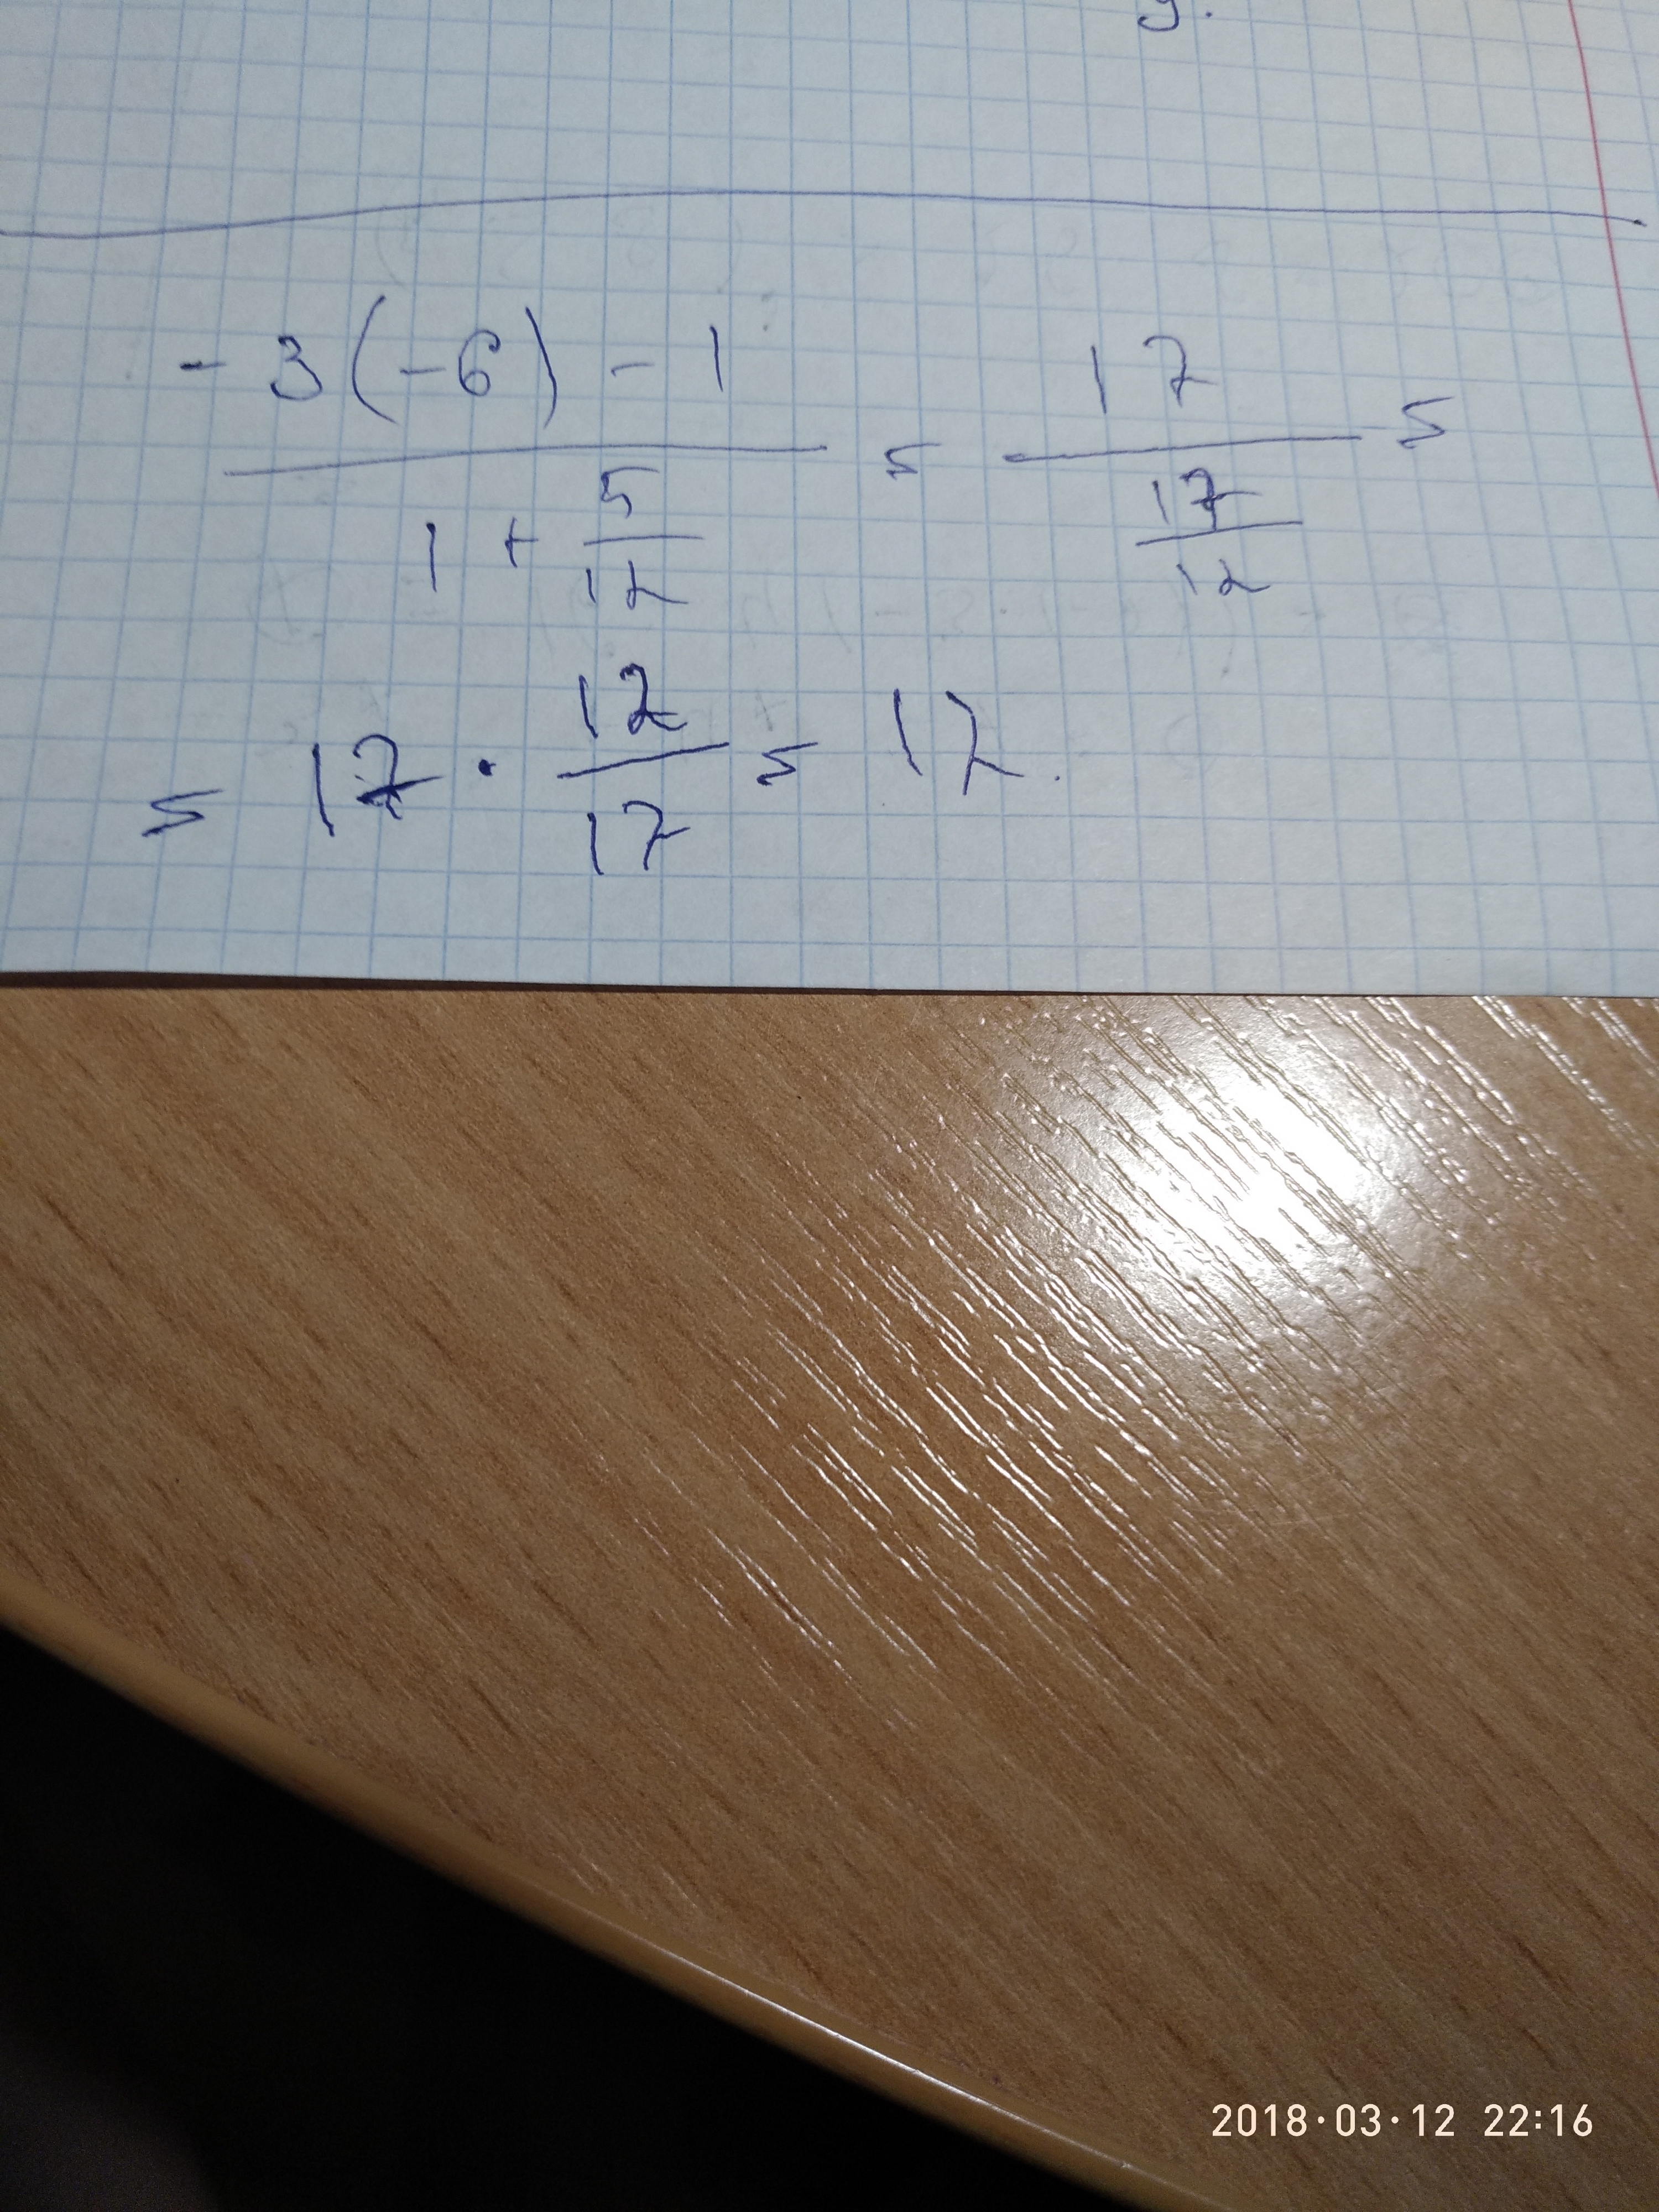 9.
-3(-6)-1 / (1+5/12) = 17 / (17/12) =
= 17 · 12/17 = 12.
2018·03·12 22:16